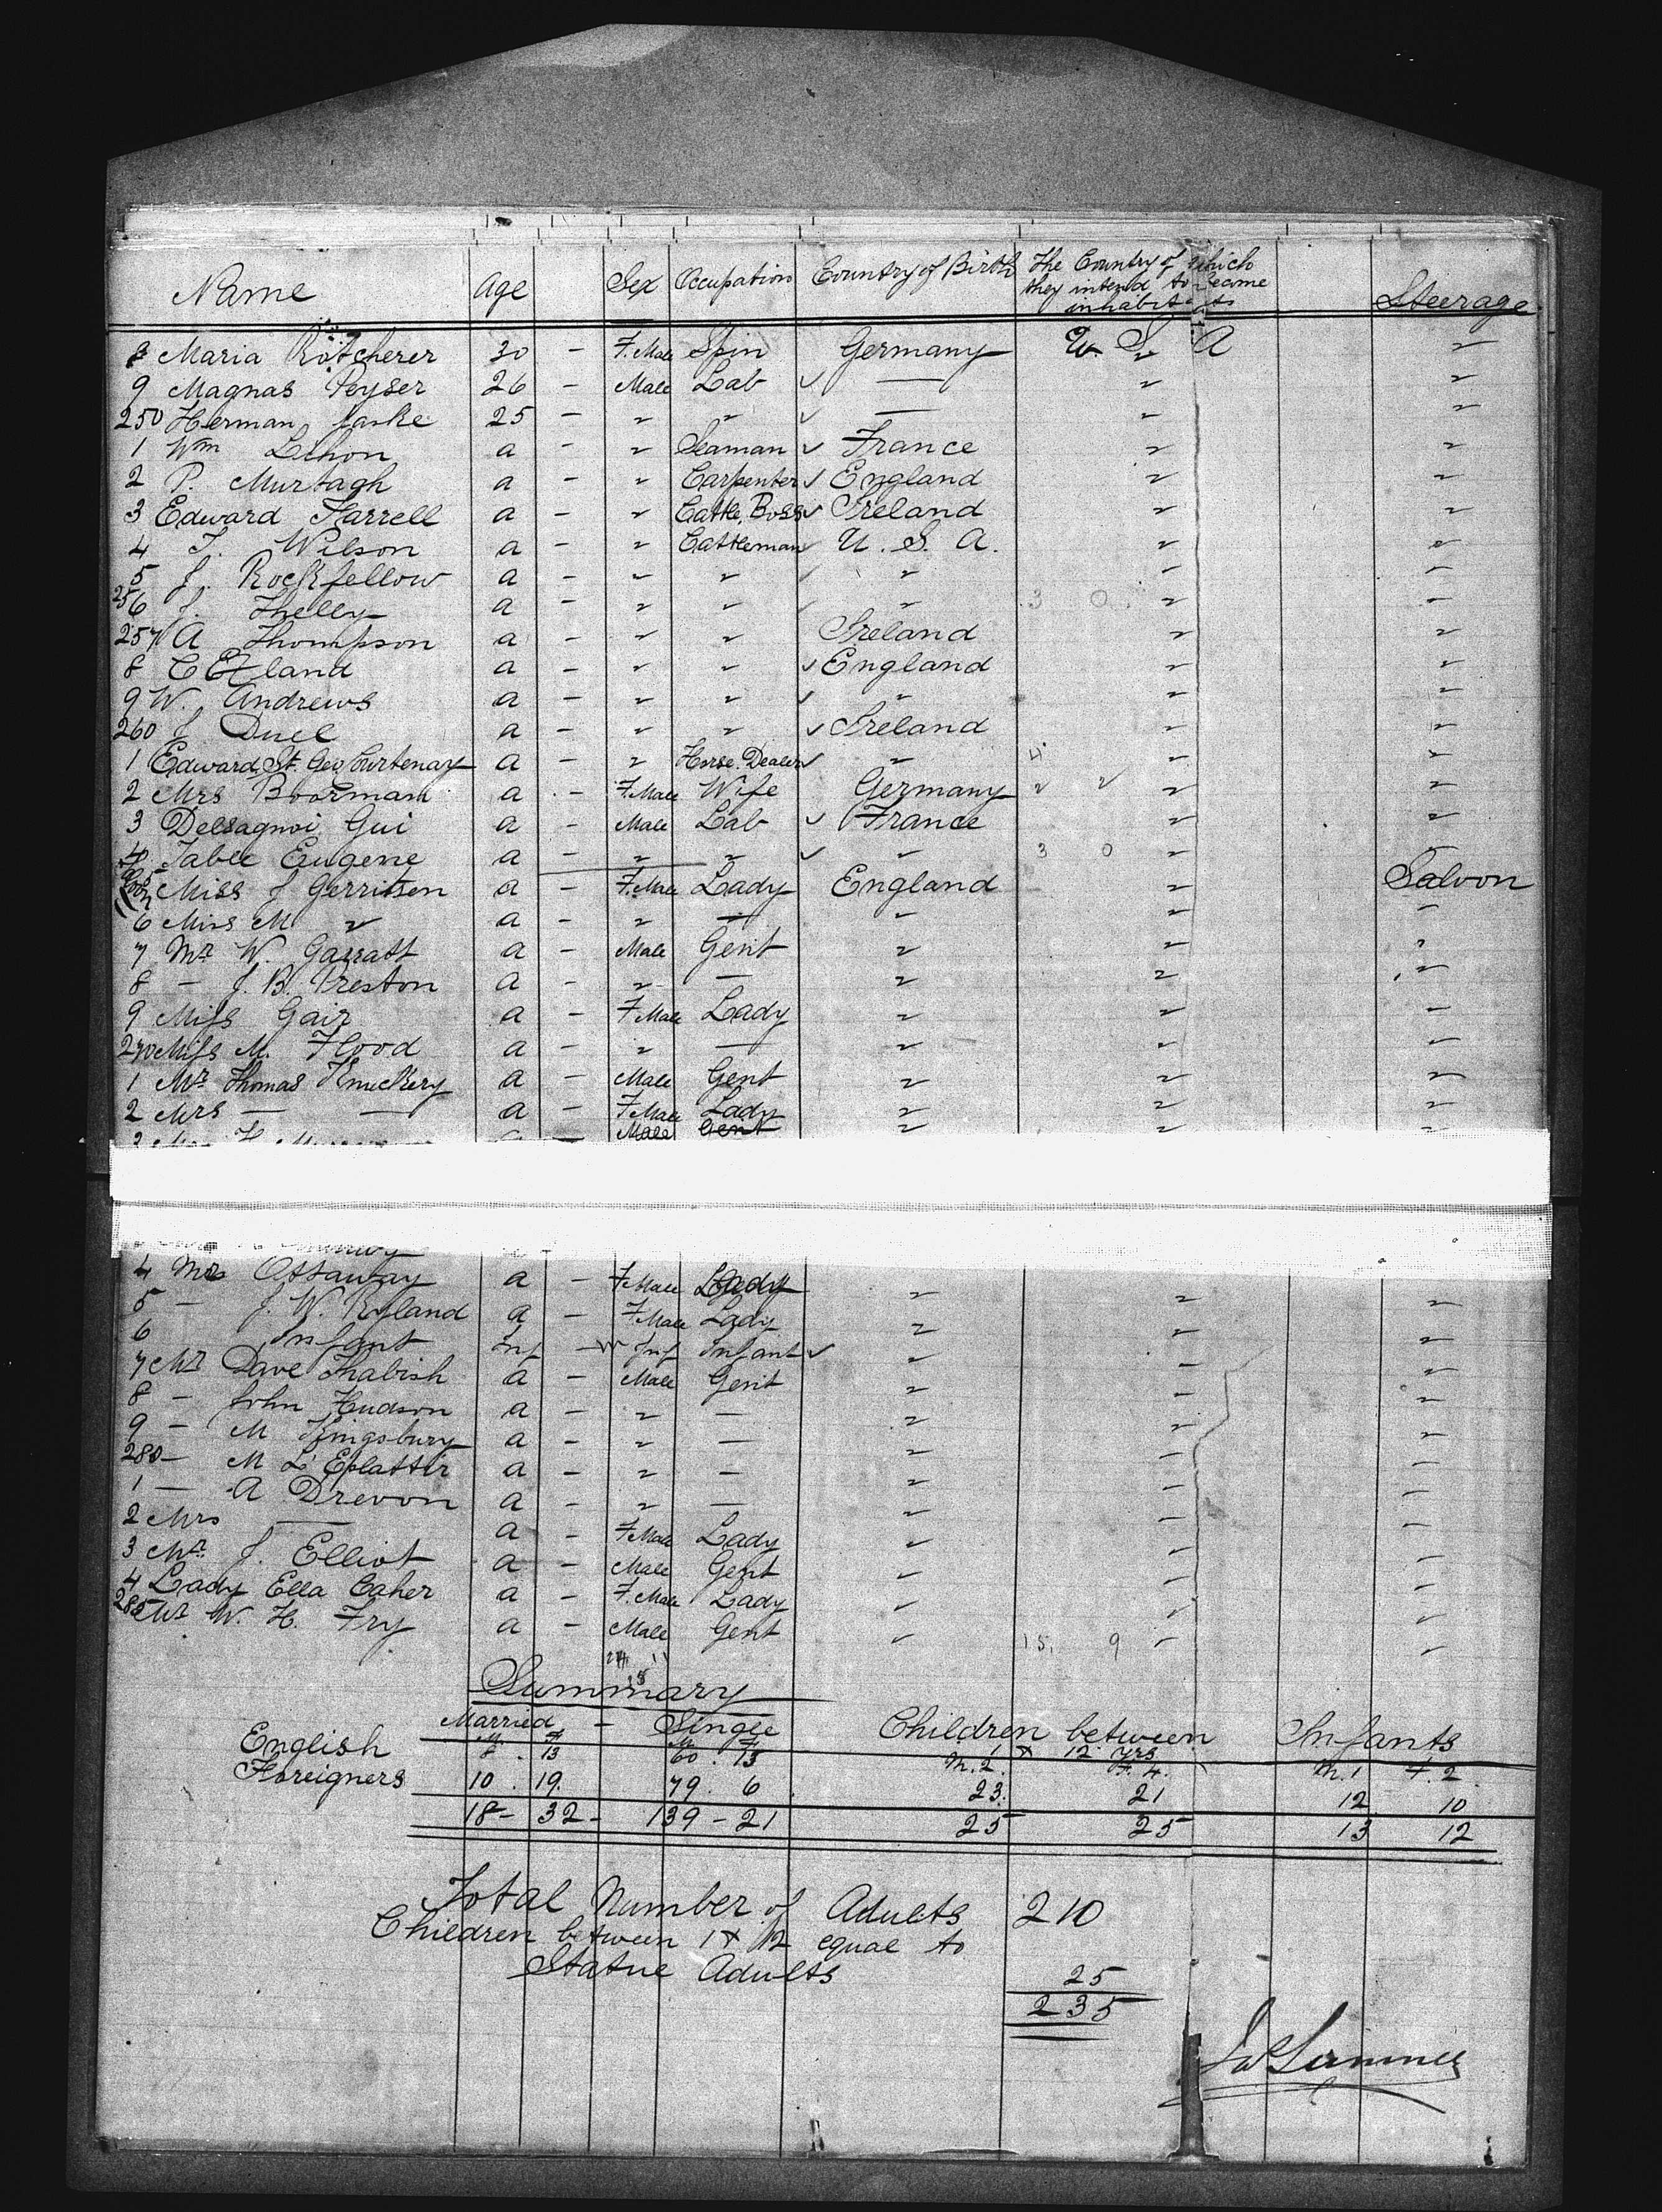 Name Age Sex Occupation Country of Birth The Country of which they intend to become inhabitants Steerage
8 Maria Rotcherer 30 - F.Male Spin Germany U S A "
9 Magnas Peyser 26 - Male Lab ✓ — " "
250 Herman Jaske 25 - " " ✓ — " "
1 Wm Lehon a - " Seaman ✓ France " "
2 P. Murtagh a - " Carpenter ✓ England " "
3 Edward Farrell a - " Cattle Boss ✓ Ireland " "
4 T. Wilson a - " Cattleman U. S. A. " "
5 J. Rockfellow a - " " " " "
256 J. Thelly a - " " " 3 0 " "
257 A Thompson a - " " Ireland " "
8 C Ezland a - " " ✓ England " "
9 W. Andrews a - " " ✓ " " "
260 J Duel a - " " ✓ Ireland " "
1 Edward St. Geo Courtenay a - " Horse Dealer ✓ " 4 " "
2 Mrs Boorman a - F.Male Wife Germany " "
3 Delsagnoi Gui a - Male Lab ✓ France " "
4 Table Eugene a - " " ✓ " 3 0 " "
5 Miss J Gerritsen a - F.Male Lady England " Saloon
6 Miss M " a - " — " " "
7 Mr W. Garratt a - Male Gent " " "
8 - J. B. Preston a - " — " " "
9 Miss Gair a - F Male Lady " " "
270 Miss M. Flood a - " — " " "
1 Mr Thomas Knuckery a - Male Gent " " "
2 Mrs — — a - F Male Lady " " "
Male Gent " " "
4 Mrs Ottaway a - F Male Lady " " "
5 - J. W. Ryland a - F.Male Lady " " "
6 Infant Inf - Inf Infant ✓ " " "
7 Mr Dave Thabish a - Male Gent " " "
8 - John Hudson a - " — " " "
9 - M Kingsbury a - " — " " "
280 - M L'Eplattir a - " — " " "
1 - A Drevon a - " — " " "
2 Mrs — a - F Male Lady " " "
3 Mr J. Elliot a - Male Gent " " "
4 Lady Ella Caher a - F.Male Lady " " "
285 Mr W. H. Fry a - Male Gent " 15 9 " "
Summary
Married - Single Children between Infants
M. F. M. F. 1 & 12 yrs
English 8 . 13 60 . 15 M. 2. F. 4. M. 1 F. 2
Foreigners 10 . 19. 79. 6 23. 21 12 10
18 - 32 - 139 - 21 25 25 13 12
Total Number of Adults 210
Children between 1 & 12 equal to
Statue Adults 25
235